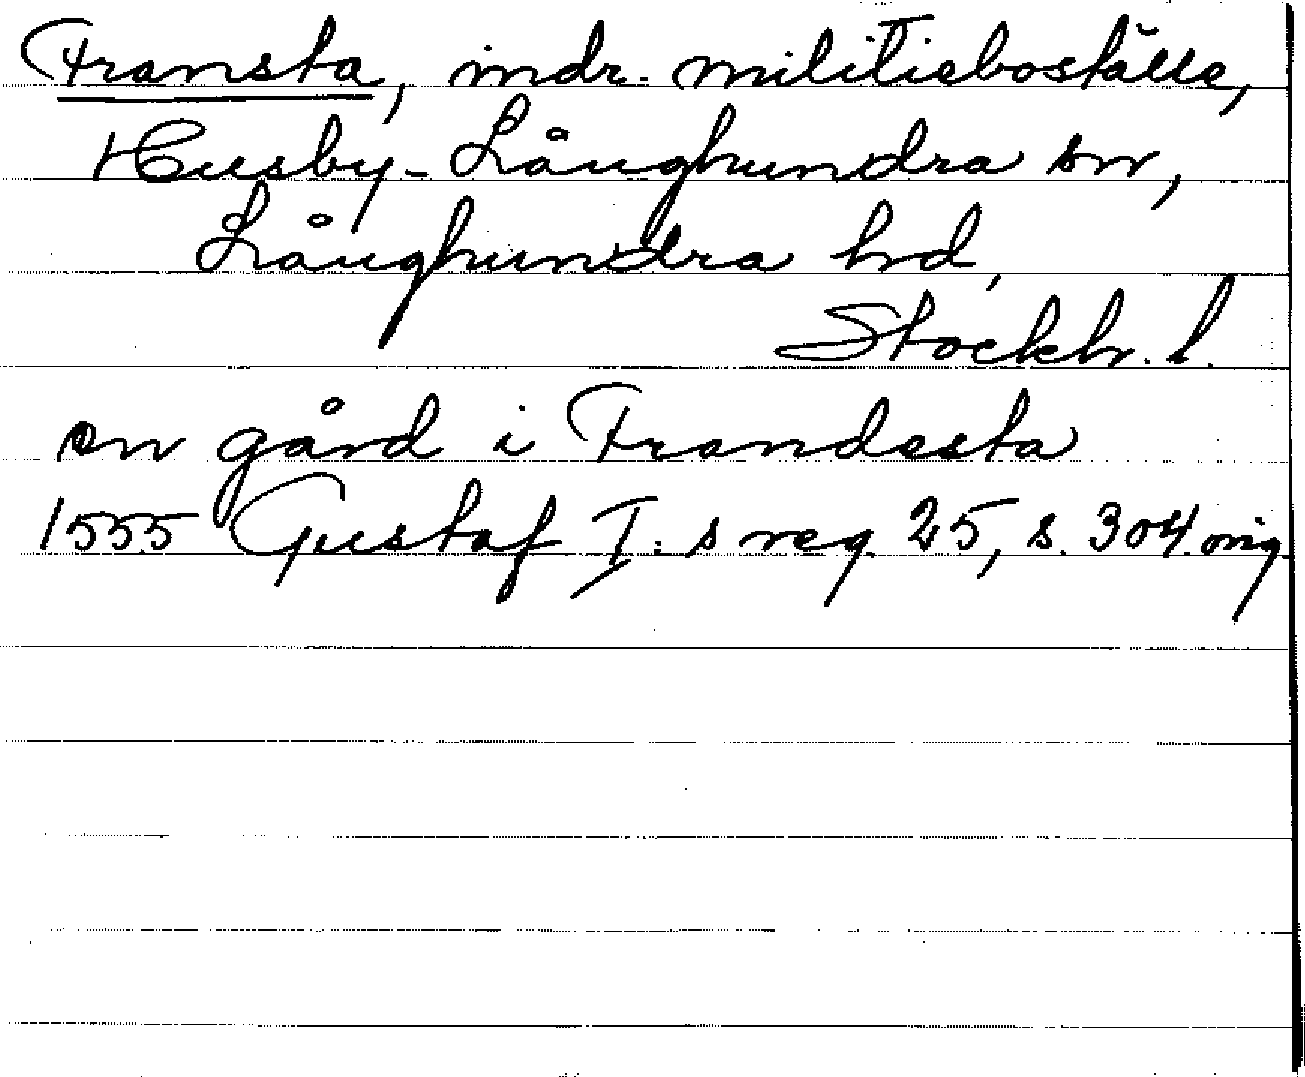 Fransta, indr. militieboställe,
Husby-Långhundra sn,
Långhundra hd,
Stockh. l.
en gård i Frandesta
1555 Gustaf I:s reg. 25, s. 304. orig.